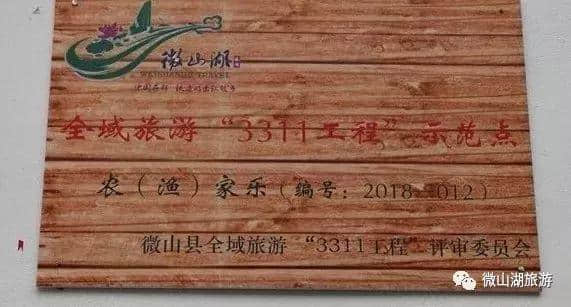 微山湖
WEISHANHU TRAVEL
全域旅游“3311工程”示范点
农（渔）家乐（编号：2018—012）
微山县全域旅游“3311工程”评审委员会
微山湖旅游